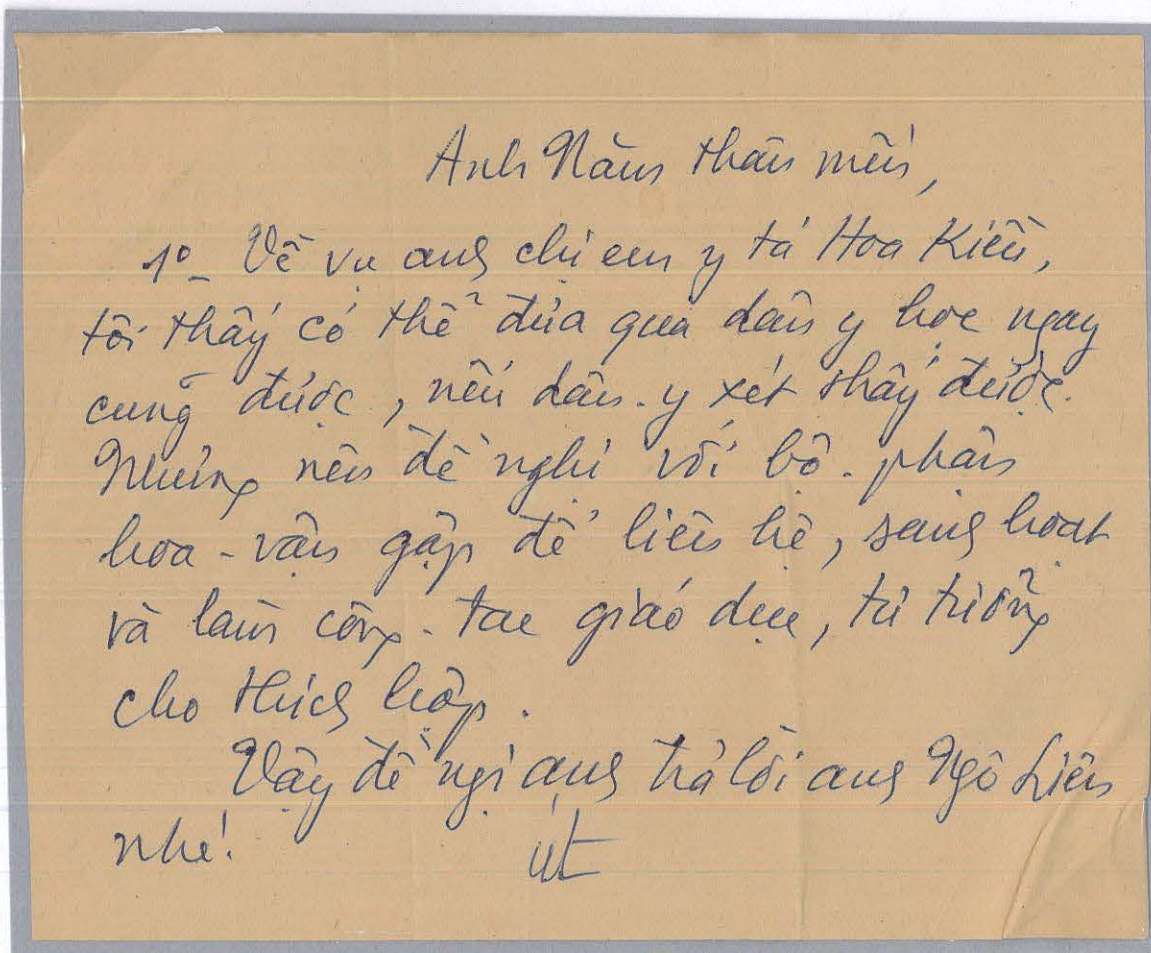 Anh Năm thân mến,
1º_ Về vụ anh chị em y tá Hoa Kiều,
tôi thấy có thể đưa qua dân y học ngay
cũng được, nếu dân-y xét thấy được.
Nhưng nên đề nghị với bộ-phận
hoa-vận gặp để liên hệ, sanh hoạt
và làm công-tac giáo dục, tư tưởng
cho thích hợp.
Vậy đề ngị anh trả lời anh Ngô Liên
nhé!
Út